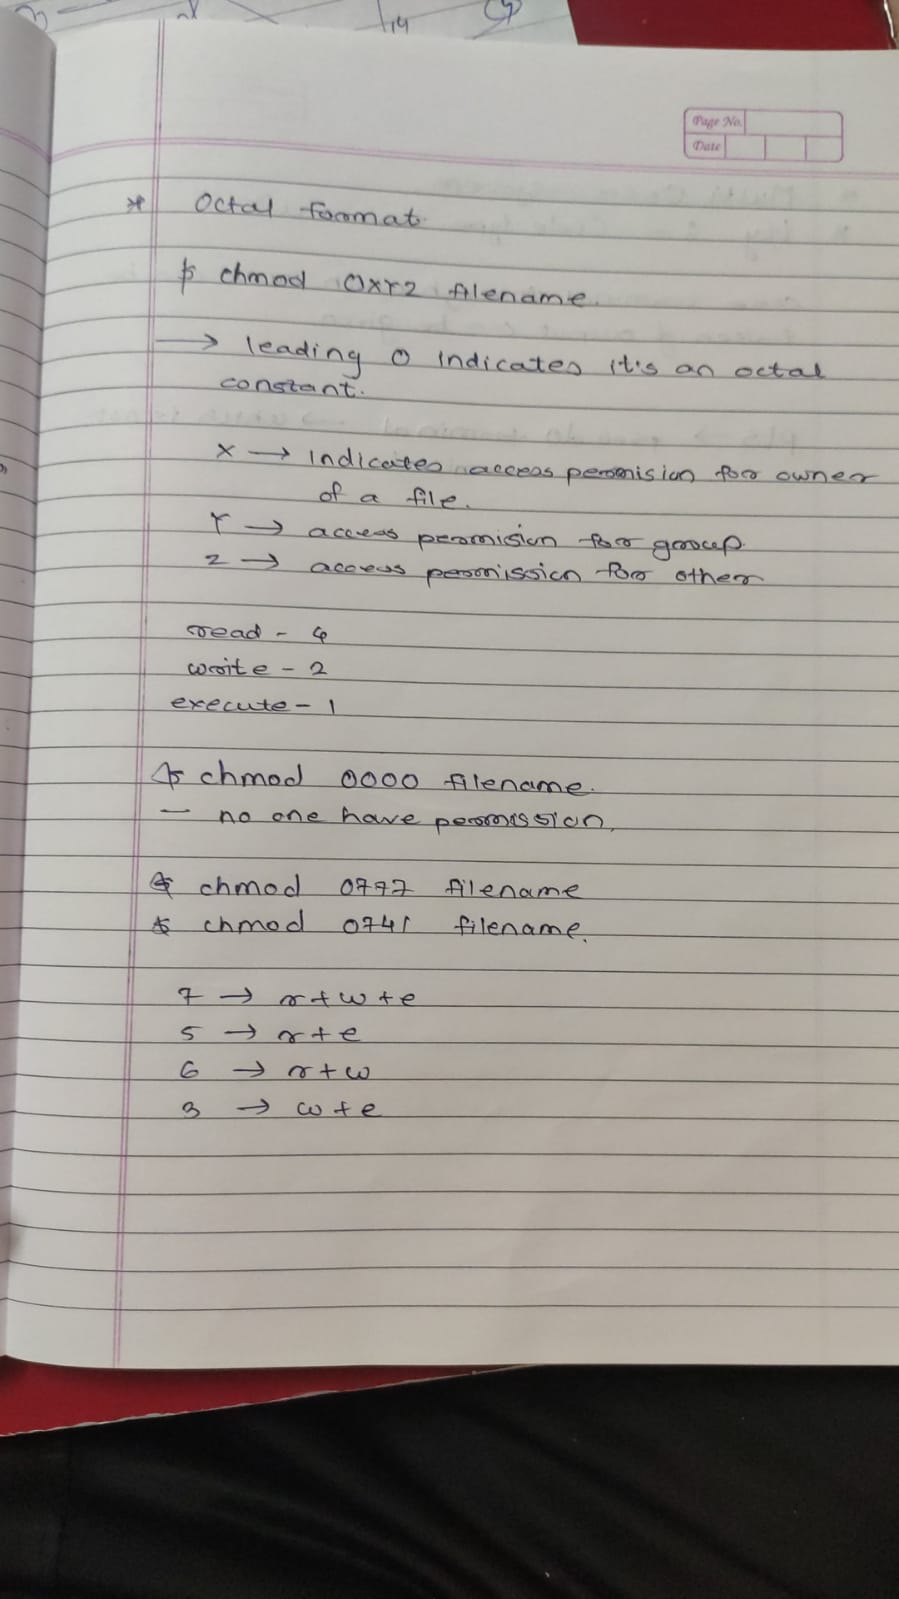 Page No.
Date
* Octal format
$ chmod 0XYZ filename.
→ leading 0 indicates it's an octal
constant.
X → indicates access permision for owner
of a file.
Y → access permision for group
Z → access permission for other
read - 4
write - 2
execute - 1
$ chmod 0000 filename.
- no one have permission.
$ chmod 0777 filename
$ chmod 0741 filename.
7 → r + w + e
5 → r + e
6 → r + w
3 → w + e